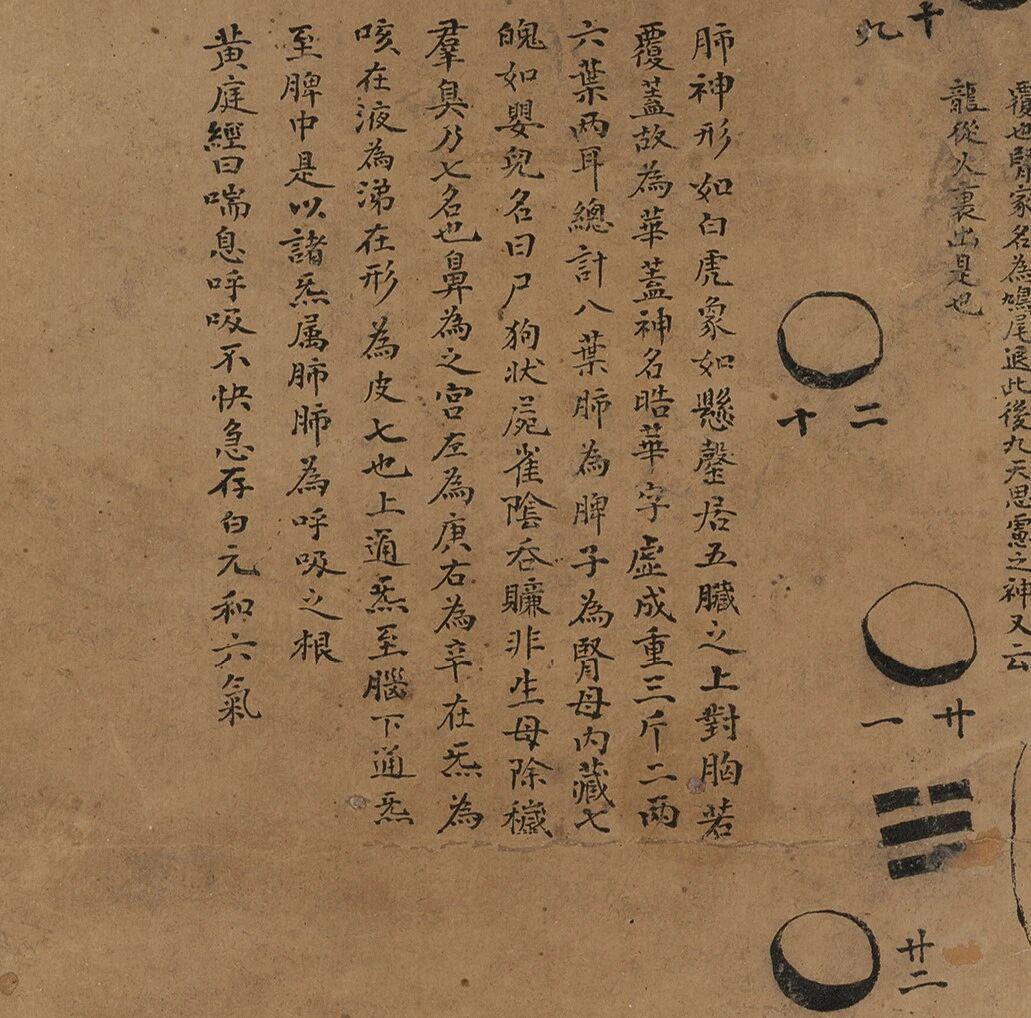 覆也腎家名為鳩尾退此後九天思慮之神又云
龍從火裏出是也
十九
二十
廿一
廿二
肺神形如白虎象如懸罄居五臟之上對胸若
覆蓋故為華蓋神名晧華字虛成重三斤二兩
六葉兩耳總計八葉肺為脾子為腎母內藏七
魄如嬰兒名曰尸狗伏屍雀陰吞賺非生母除穢
羣臭乃七名也鼻為之宮左為庚右為辛在炁為
咳在液為涕在形為皮七也上通炁至腦下通炁
至脾中是以諸炁属肺肺為呼吸之根
黃庭經曰喘息呼吸不快急存白元和六氣